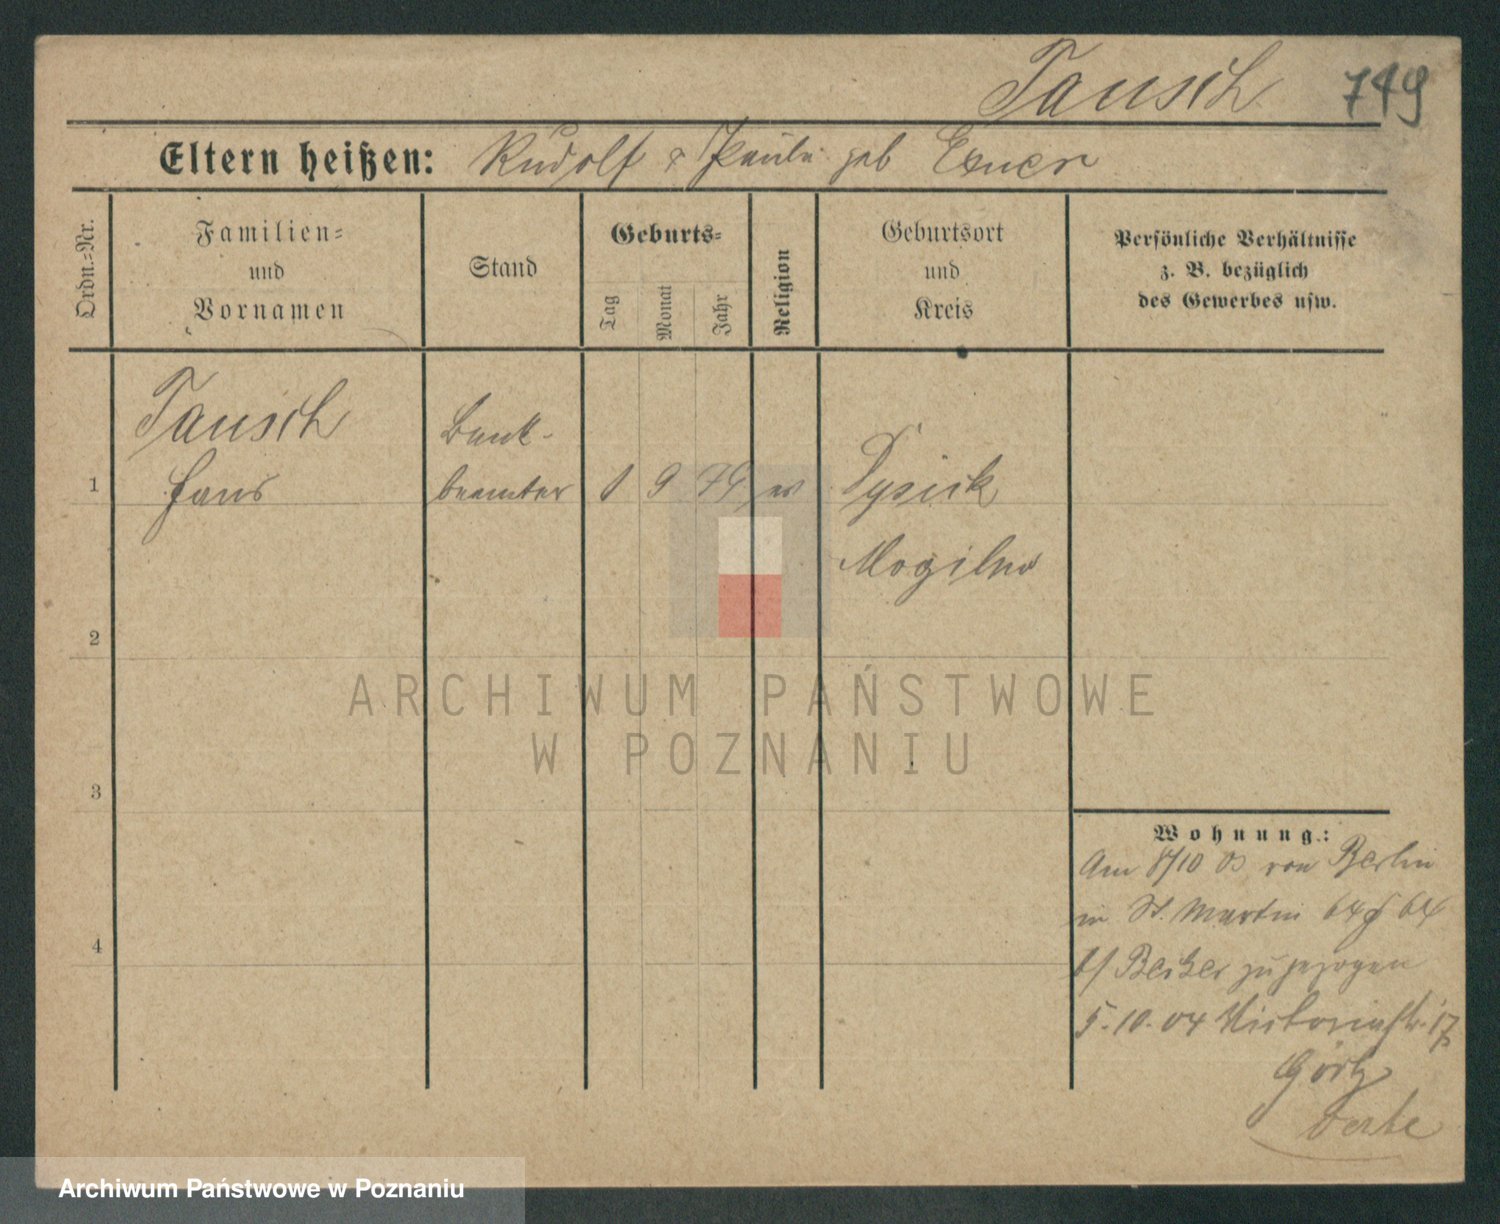 Tausch 749
Eltern heißen: Rudolf & Paula geb Exner
Ordn.-Nr.
Familien-
und
Vornamen
Stand
Geburts-
Tag
Monat
Jahr
Religion
Geburtsort
und
Kreis
Persönliche Verhältnisse
z. B. bezüglich
des Gewerbes usw.
Tausch
Hans
Bank-
beamter
1 9 79 ev
Mogilno
1
2
3
4
ARCHIWUM PAŃSTWOWE
W POZNANIU
Wohnung:
Am 8/10 03 von Berlin
in St. Martin 64
b/ Becker zugezogen
5.10.04 Victoriastr. 17
Archiwum Państwowe w Poznaniu